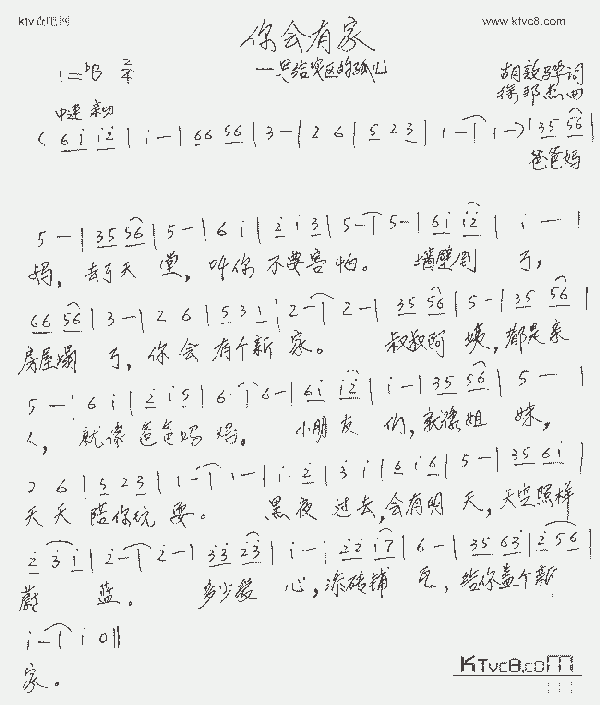 ktv歌吧网 www.ktvc8.com
你会有家
—只给灾区的孤儿
1=♭B 2/4 胡敦骅词
保那杰曲
中速 亲切
( 6 i i 2 | i — | 6 6 5 6 | 3 — | 2 6 | 5 2 3 | 1 — | 1 — ) | 3 5 5 6 |
爸爸妈
5 — | 3 5 5 6 | 5 — | 6 i | 2 i 3 | 5 — | 5 — | 6 i i 2 | i — |
妈,去了天堂,叫你不要害怕。墙壁倒了,
6 6 5 6 | 3 — | 2 6 | 5 3 1 | 2 — | 2 — | 3 5 5 6 | 5 — | 3 5 5 6 |
房屋塌了,你会有个新家。叔叔阿姨,都是亲
5 — | 6 i | 2 i 5 | 6 — | 6 — | 6 i i 2 | i — | 3 5 5 6 | 5 — |
人,就像爸爸妈妈。小朋友们,就像姐妹,
2 6 | 5 2 3 | 1 — | 1 — | i 2 | 3 i | 6 i 6 | 5 — | 3 5 6 i |
天天陪你玩耍。黑夜过去,会有明天,天空照样
2 3 i | 2 — | 2 — | 3 3 2 3 | i — | 2 2 i 7 | 6 — | 3 5 6 3 | 2 5 6 |
蔚蓝。多少爱心,添砖铺瓦,给你盖个新
i — | i 0 ||
家。
KTvc8.com